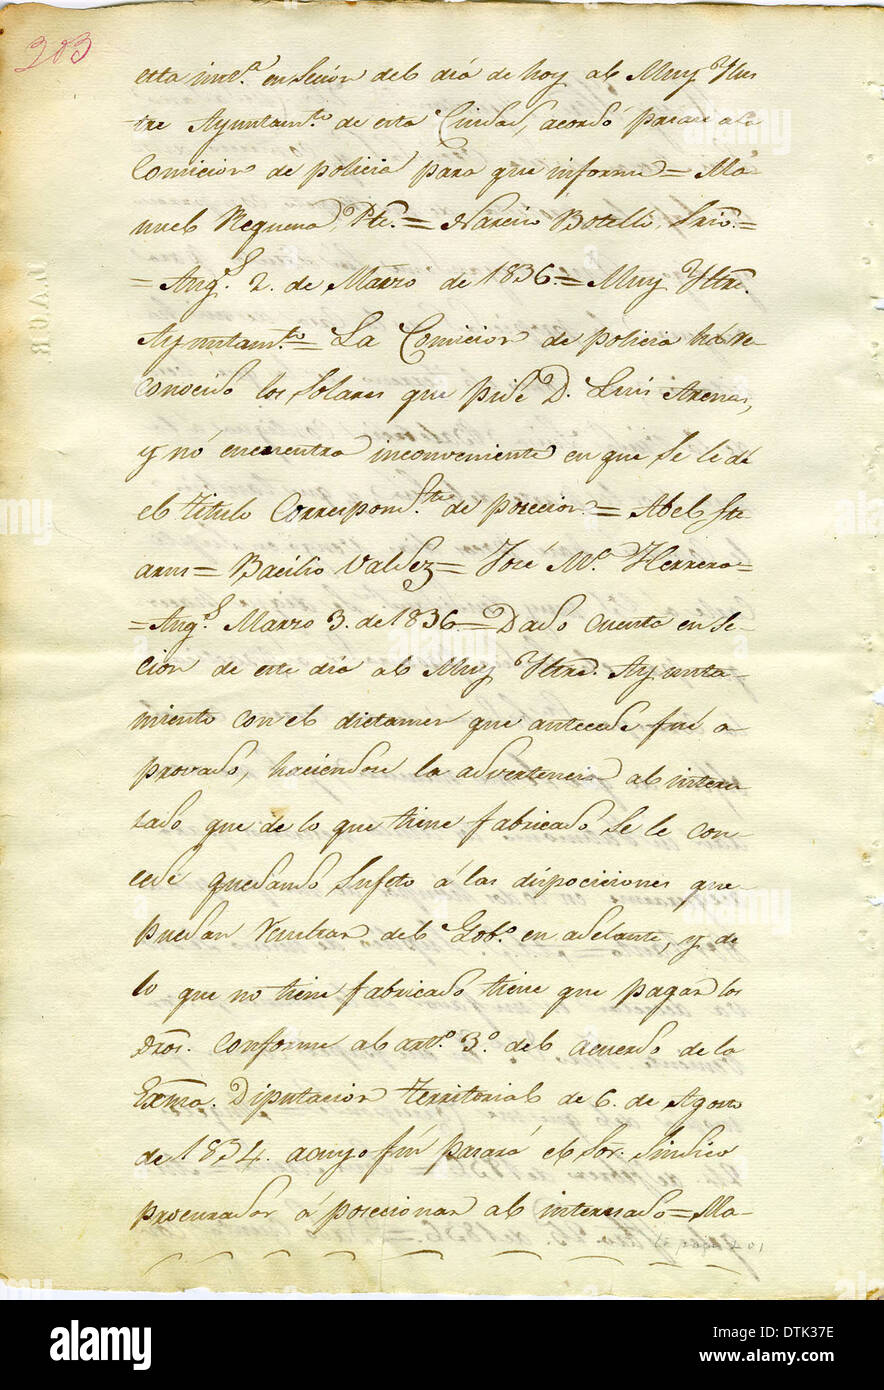 203
esta inste.ª en secion del dia de hoy al Muy Ylus
tre Ayuntam.to de esta Ciudad, acordó pasase a la
Comicion de policia para que informe = Ma
nuel Requena, Pte. = Narciso Botello, Srio. =
= Ang.s 2. de Marzo de 1836. = Muy Yltre.
Ayuntam.to = La Comicion de policia há re
conocido los solares que pide D. Luis Arenas,
y nó encuentra inconveniente en que se le dé
el titulo correspond.te de posecion = Abel Ste
arns = Bacilio Valdez = José M.ª Herrera =
= Ang.s Marzo 3. de 1836. = Dado cuenta en se-
cion de este dia al Muy Yltre. Ayunta-
miento con el dictamen que antecede fué a
provado, haciendose la advertencia al intere
sado que de lo que tiene fabricado se le con-
cede quedando sujeto á las disposiciones que
puedan resultar del Gob.o en adelante, y de
lo que no tiene fabricado tiene que pagar los
dros. conforme al art.o 3.o del acuerdo de la
Exma. Diputacion Territorial de 6. de Agosto
de 1834. a cuyo fin pasará el Sor. Sindico
procurador á posecionar al interesado = Ma-
alamy
DTK37E
www.alamy.com